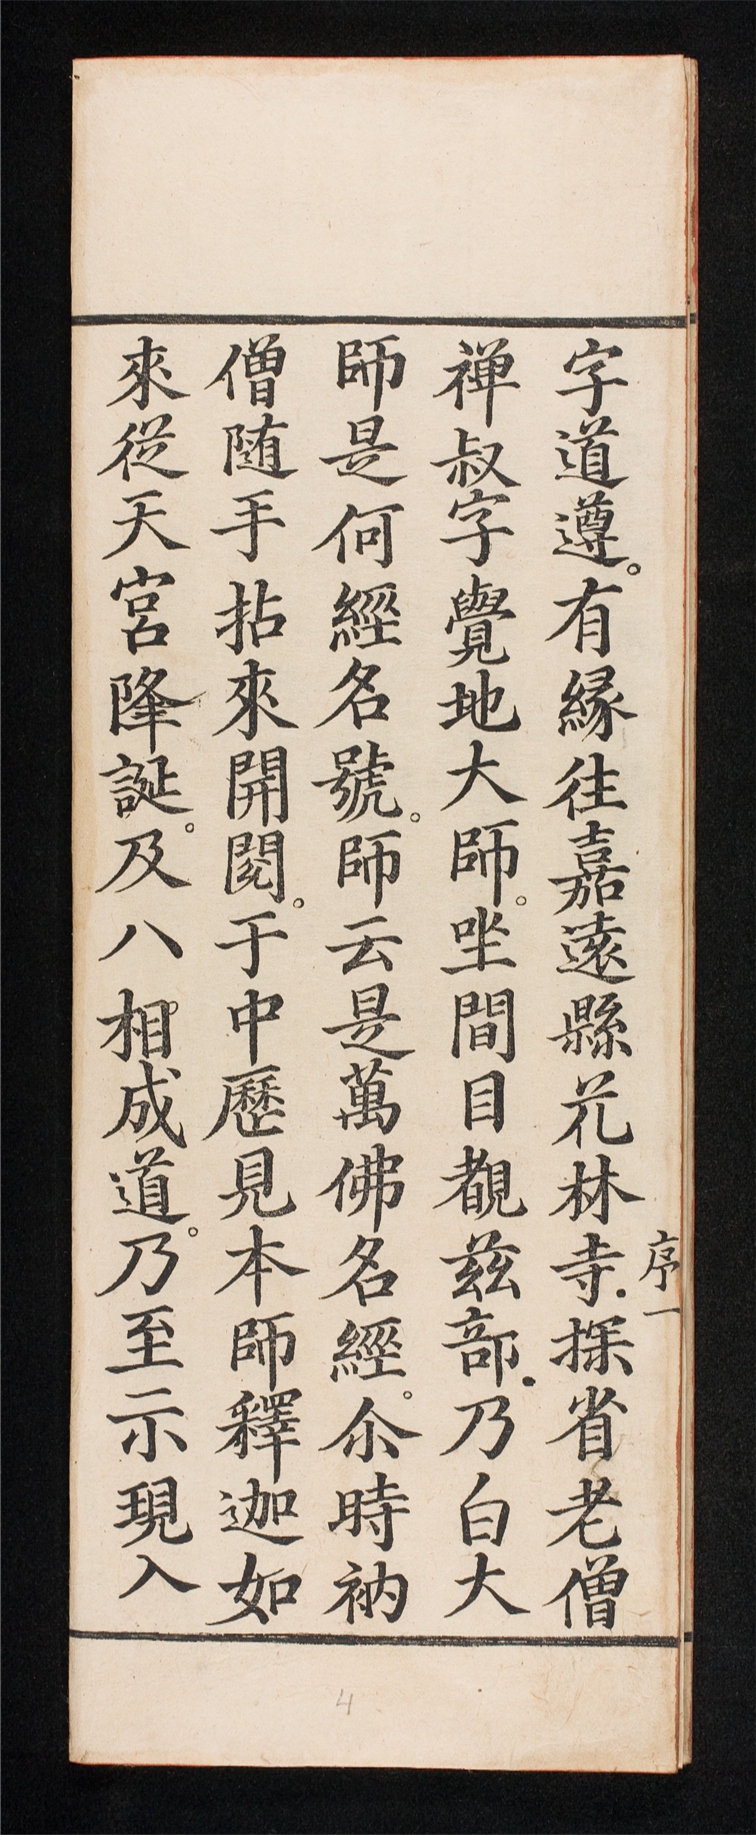 字道遵。有縁往嘉遠縣花林寺.探省老僧
序一
禅叔字覺地大師。坐間目覩茲部.乃白大
師是何經名號。師云是萬佛名經。尒時衲
僧随手拈來開閱。于中歷見本師釋迦如
來従天宮降誕。及八相。成道。乃至示現入
4